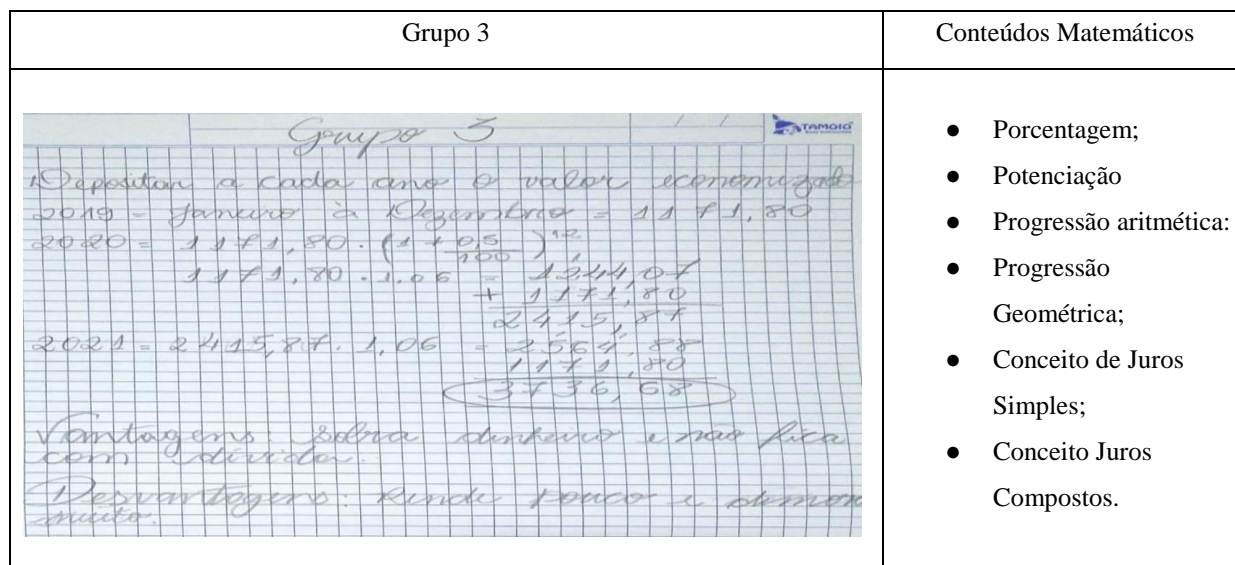 Grupo 3
Conteúdos Matemáticos
Grupo 3
TAMOIO
Depositar a cada ano o valor economizado
2019 - Janeiro à Dezembro = 1171,80
2020 = 1171,80 . (1 + 0,5/100)^12
1171,80 . 1.06 = 1244,07
+ 1171,80
2415,87
2021 = 2415,87 . 1,06 = 2564,88
1171,80
3736,68
Vantagens: Sobra dinheiro e não fica
com dívida.
Desvantagens: Rende pouco e demora
muito.
● Porcentagem;
● Potenciação
● Progressão aritmética:
● Progressão
Geométrica;
● Conceito de Juros
Simples;
● Conceito Juros
Compostos.